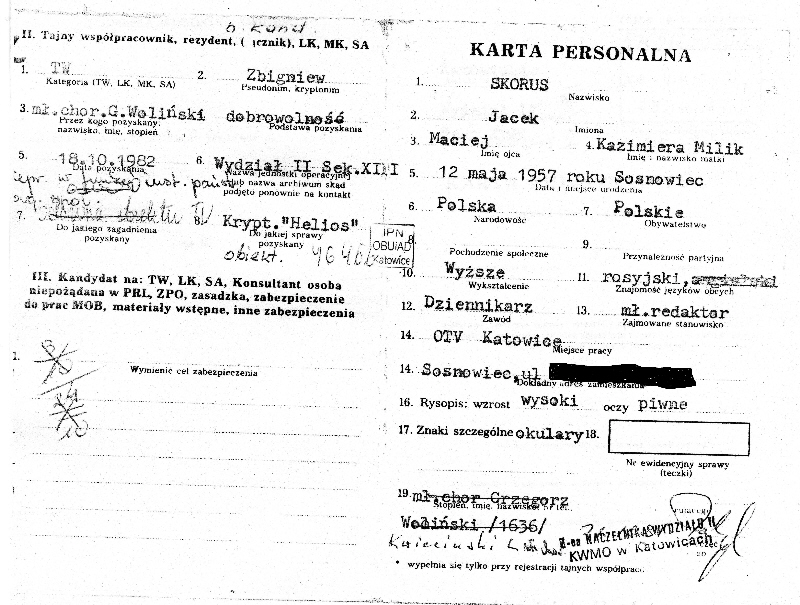 b. kand.
II. Tajny współpracownik, rezydent, ( ącznik), LK, MK, SA
1. TW
Kategoria (TW, LK, MK, SA)
2. Zbigniew
Pseudonim, kryptonim
3. mł.chor.G.Woliński
Przez kogo pozyskany:
nazwisko, imię, stopień
dobrowolność
Podstawa pozyskania
5. 18.10.1982
Data pozyskania
6. Wydział II Sek.XIII
Nazwa jednostki operacyjnej
lub nazwa archiwum skąd
podjęto ponownie na kontakt
7.
Do jakiego zagadnienia
pozyskany
8. Krypt."Helios"
Do jakiej sprawy
pozyskany
obiekt.
IPN
OBUiAD
Katowice
III. Kandydat na: TW, LK, SA, Konsultant osoba
niepożądana w PRL, ZPO, zasadzka, zabezpieczenie
do prac MOB, materiały wstępne, inne zabezpieczenia
1.
Wymienić cel zabezpieczenia
KARTA PERSONALNA
1. SKORUS
Nazwisko
2. Jacek
Imiona
3. Maciej
Imię ojca
4. Kazimiera Milik
Imię i nazwisko matki
5. 12 maja 1957 roku Sosnowiec
Data i miejsce urodzenia
6. Polska
Narodowość
7. Polskie
Obywatelstwo
8.
Pochodzenie społeczne
9.
Przynależność partyjna
10. Wyższe
Wykształcenie
11. rosyjski,
Znajomość języków obcych
12. Dziennikarz
Zawód
13. mł.redaktor
Zajmowane stanowisko
14. OTV Katowice
Miejsce pracy
14. Sosnowiec,ul
Dokładny adres zamieszkania
16. Rysopis: wzrost wysoki oczy piwne
17. Znaki szczególne okulary 18.
Nr ewidencyjny sprawy
(teczki)
19. mł.chor Grzegorz
Stopień, imię, nazwisko
Woliński /1636/
Z-ca NACZELNIKA WYDZIAŁU II
KWMO w Katowicach
* wypełnia się tylko przy rejestracji tajnych współprac.